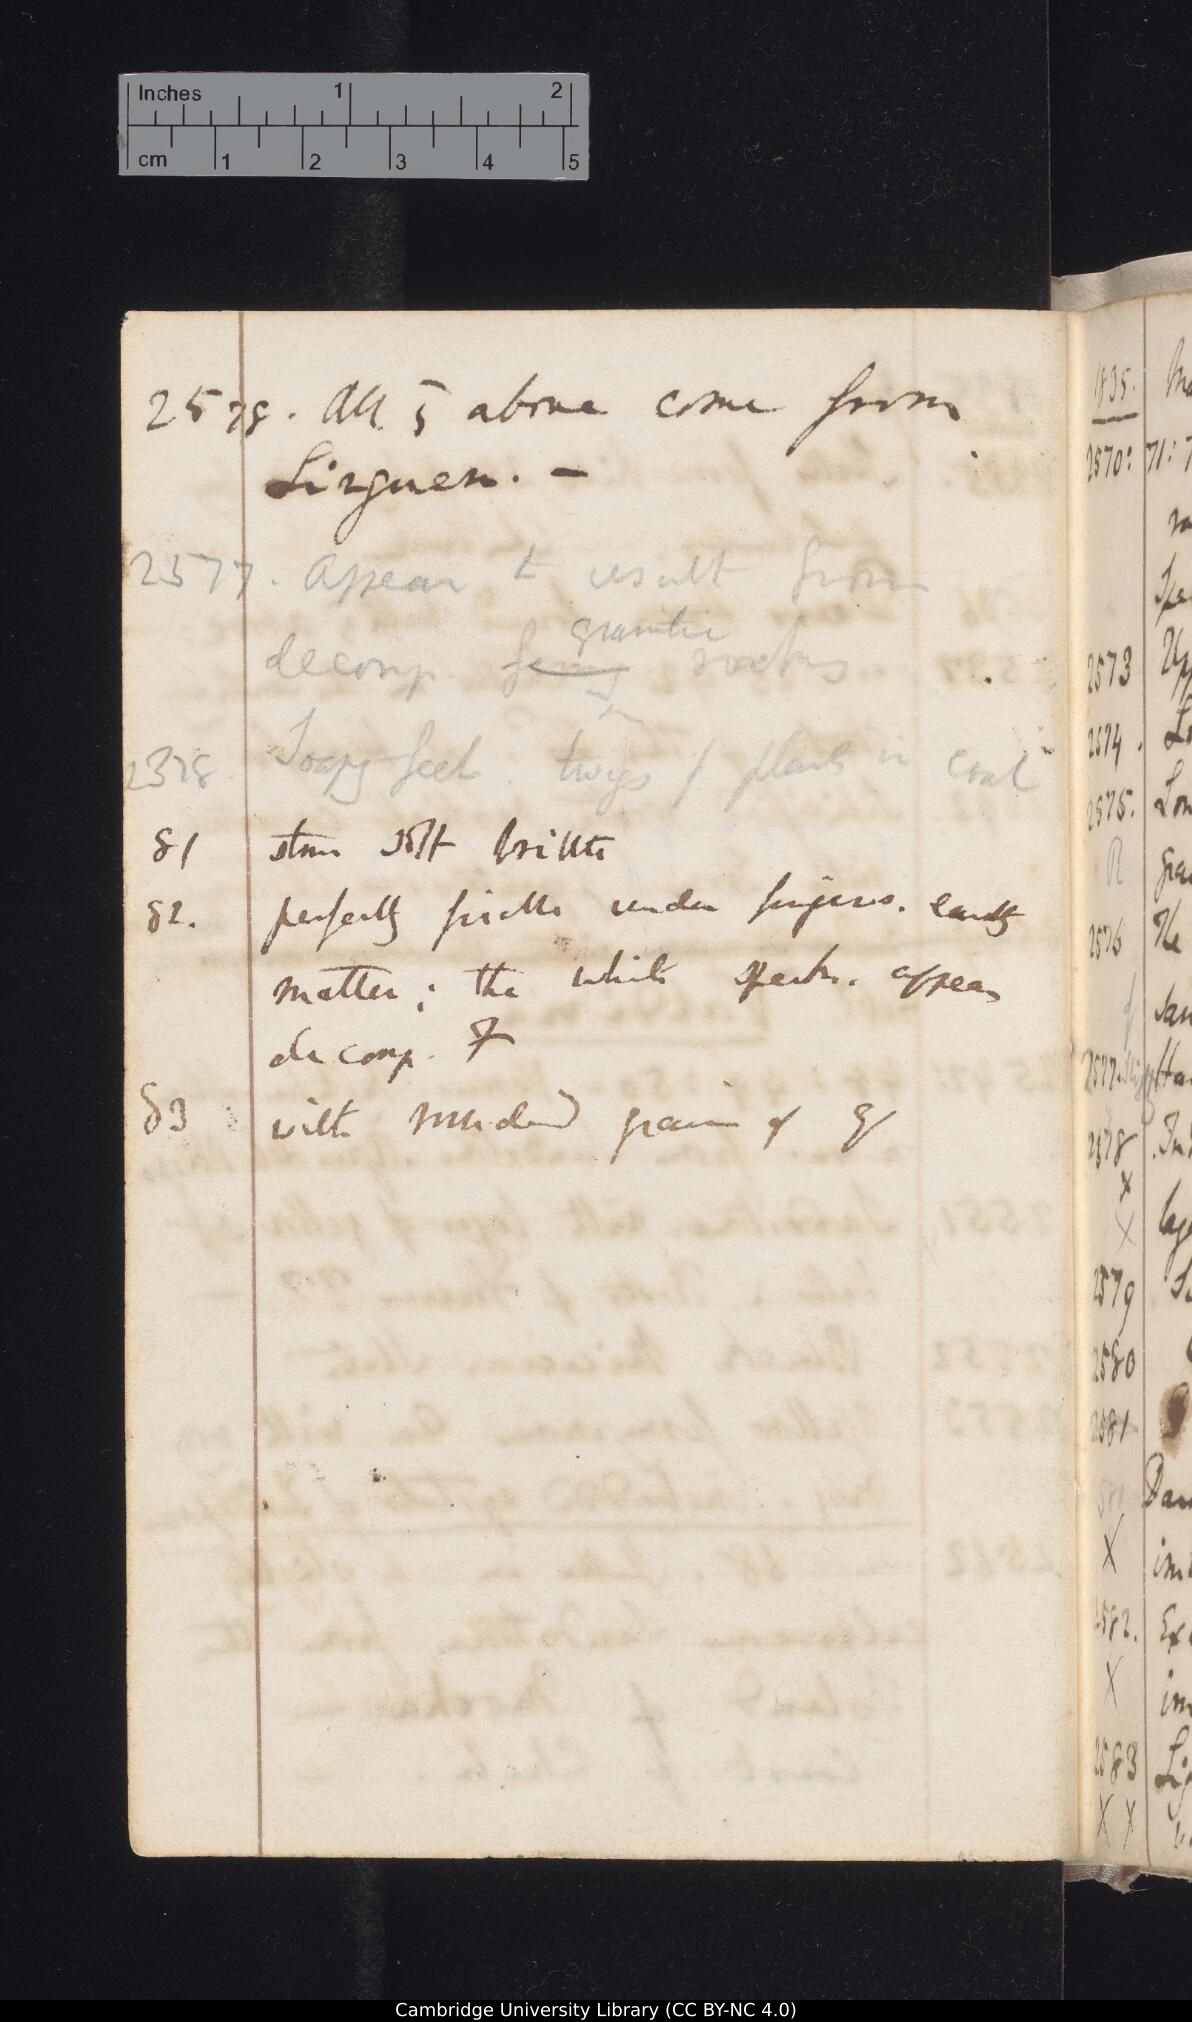 Inches 1 2
cm 1 2 3 4 5
2578. All 5 above come from
Lirguen. —
2577. Appear to result from
granitic
decomp. rocks
2578 Soapy feel. twigs of plants in coal
81 stone soft brittle
82. perfectly friable under fingers. earthy
matter; the white specks. appear
decomp. F
83 with rounded grains of Q
1835.
2570: 71:
2573
2574.
2575.
R
2576
2577.
2578
x
x
2579
2580
2581
X
2582.
X
2583
X X
Cambridge University Library (CC BY-NC 4.0)